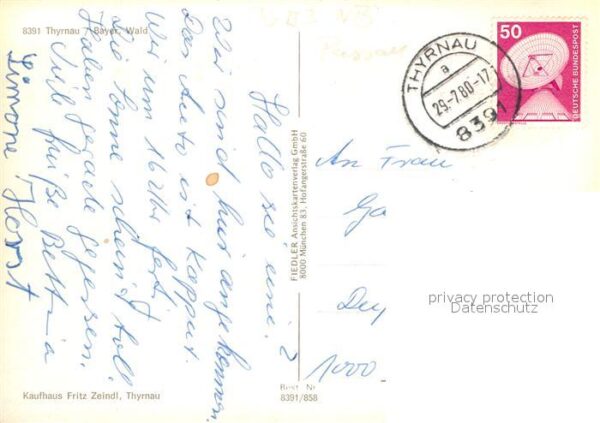 8391 Thyrnau / Bayer. Wald
Hallo sie eine. 2
Wir sind hier angekommen.
Das Auto ist kapput.
Wir um 16 Uhr fort.
Die Sonne scheint toll
Haben gerade gegessen.
Viele Grüße Bettina
Simone Horst
Kaufhaus Fritz Zeindl, Thyrnau
FIEDLER Ansichtskartenverlag GmbH
8000 München 83, Hofangerstraße 60
Best. Nr.
8391/858
Passau
THYRNAU
a
29.-7.80-17
8391
50
DEUTSCHE BUNDESPOST
An Frau
Ga
1000
privacy protection
Datenschutz